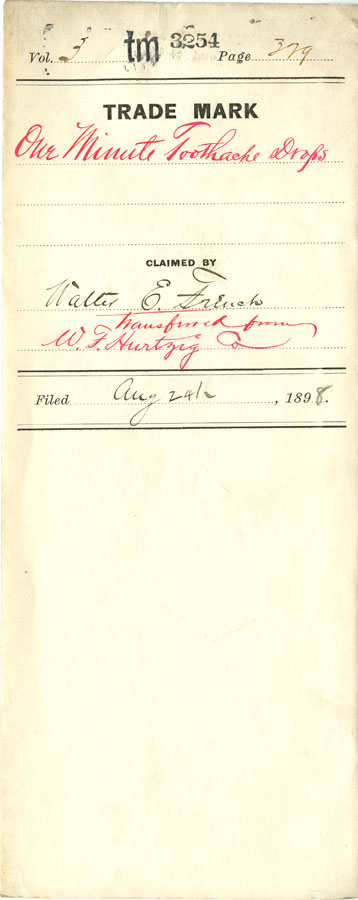 Vol. 3 tm 3254 Page 379
TRADE MARK
One Minute Toothache Drops
CLAIMED BY
Walter E. French
transferred from
W. F. Hurtzig
Filed Aug 24th, 1898.